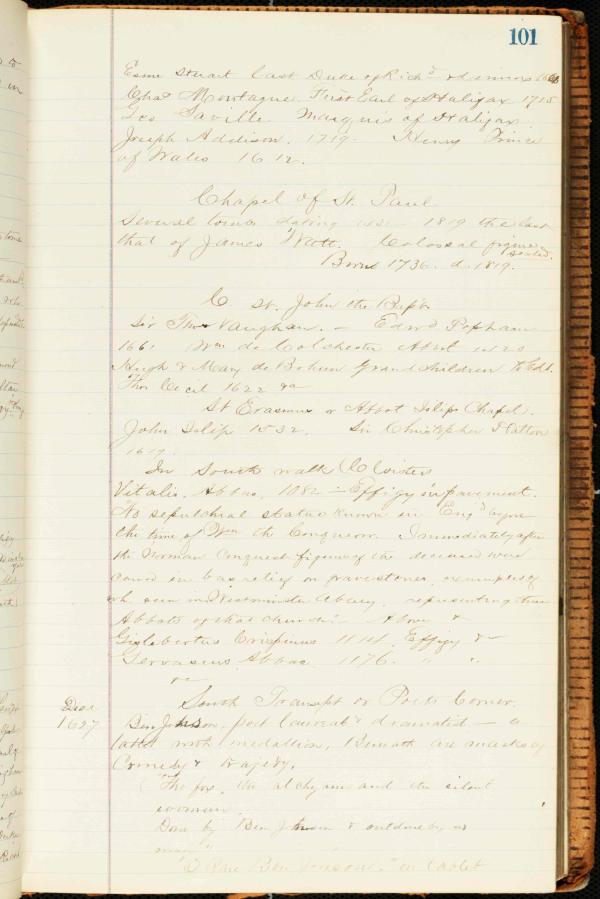 101
Esme Stuart last Duke of Richd & Lennox 1660
Chas Montague. First Earl of Halifax 1715
Geo Saville. Marquis of Halifax.
Joseph Addison. 1719. Henry Prince
of Wales 1612.
Chapel of St. Paul
Several tombs dating 1431 - 1819 the last
that of James Watt. Colossal figure
seated.
Born 1736. d. 1819.
C St. John the Bapt.
Sir Thos Vaughan. — Edwd Popham
1661 Wm de Colchester Abbot 1420
Hugh & Mary de Bohun Grandchildren to Ed 1.
Thos Cecil 1622 &c
St Erasmus or Abbot Islips Chapel.
John Islip 1532. Sir Christopher Hatton
1619.
In South walk Cloister
Vitalis. Abbas. 1082 — Effigy in pavement.
No sepulchral statue known in Engd before
the time of Wm the Conqueror. Immediately after
the Norman Conquest figures of the deceased were
carved in bas relief on gravestones, examples of
wh. seen in Westminster Abbey, representing three
Abbots of that church." Above &
Gislebertus Crispinus 1114. Effigy &
Gervasius Abbas 1176. " "
South Transept or Poets Corner.
Died
1637
Ben Johnson, poet laureat & dramatist — a
tablet with medallion, Beneath are masks of
Comedy & tragedy.
"The fox, the alchymist and the silent
woman
Done by Ben Johnson & outdone by no
man"
"O Rare Ben Jonson." on tablet